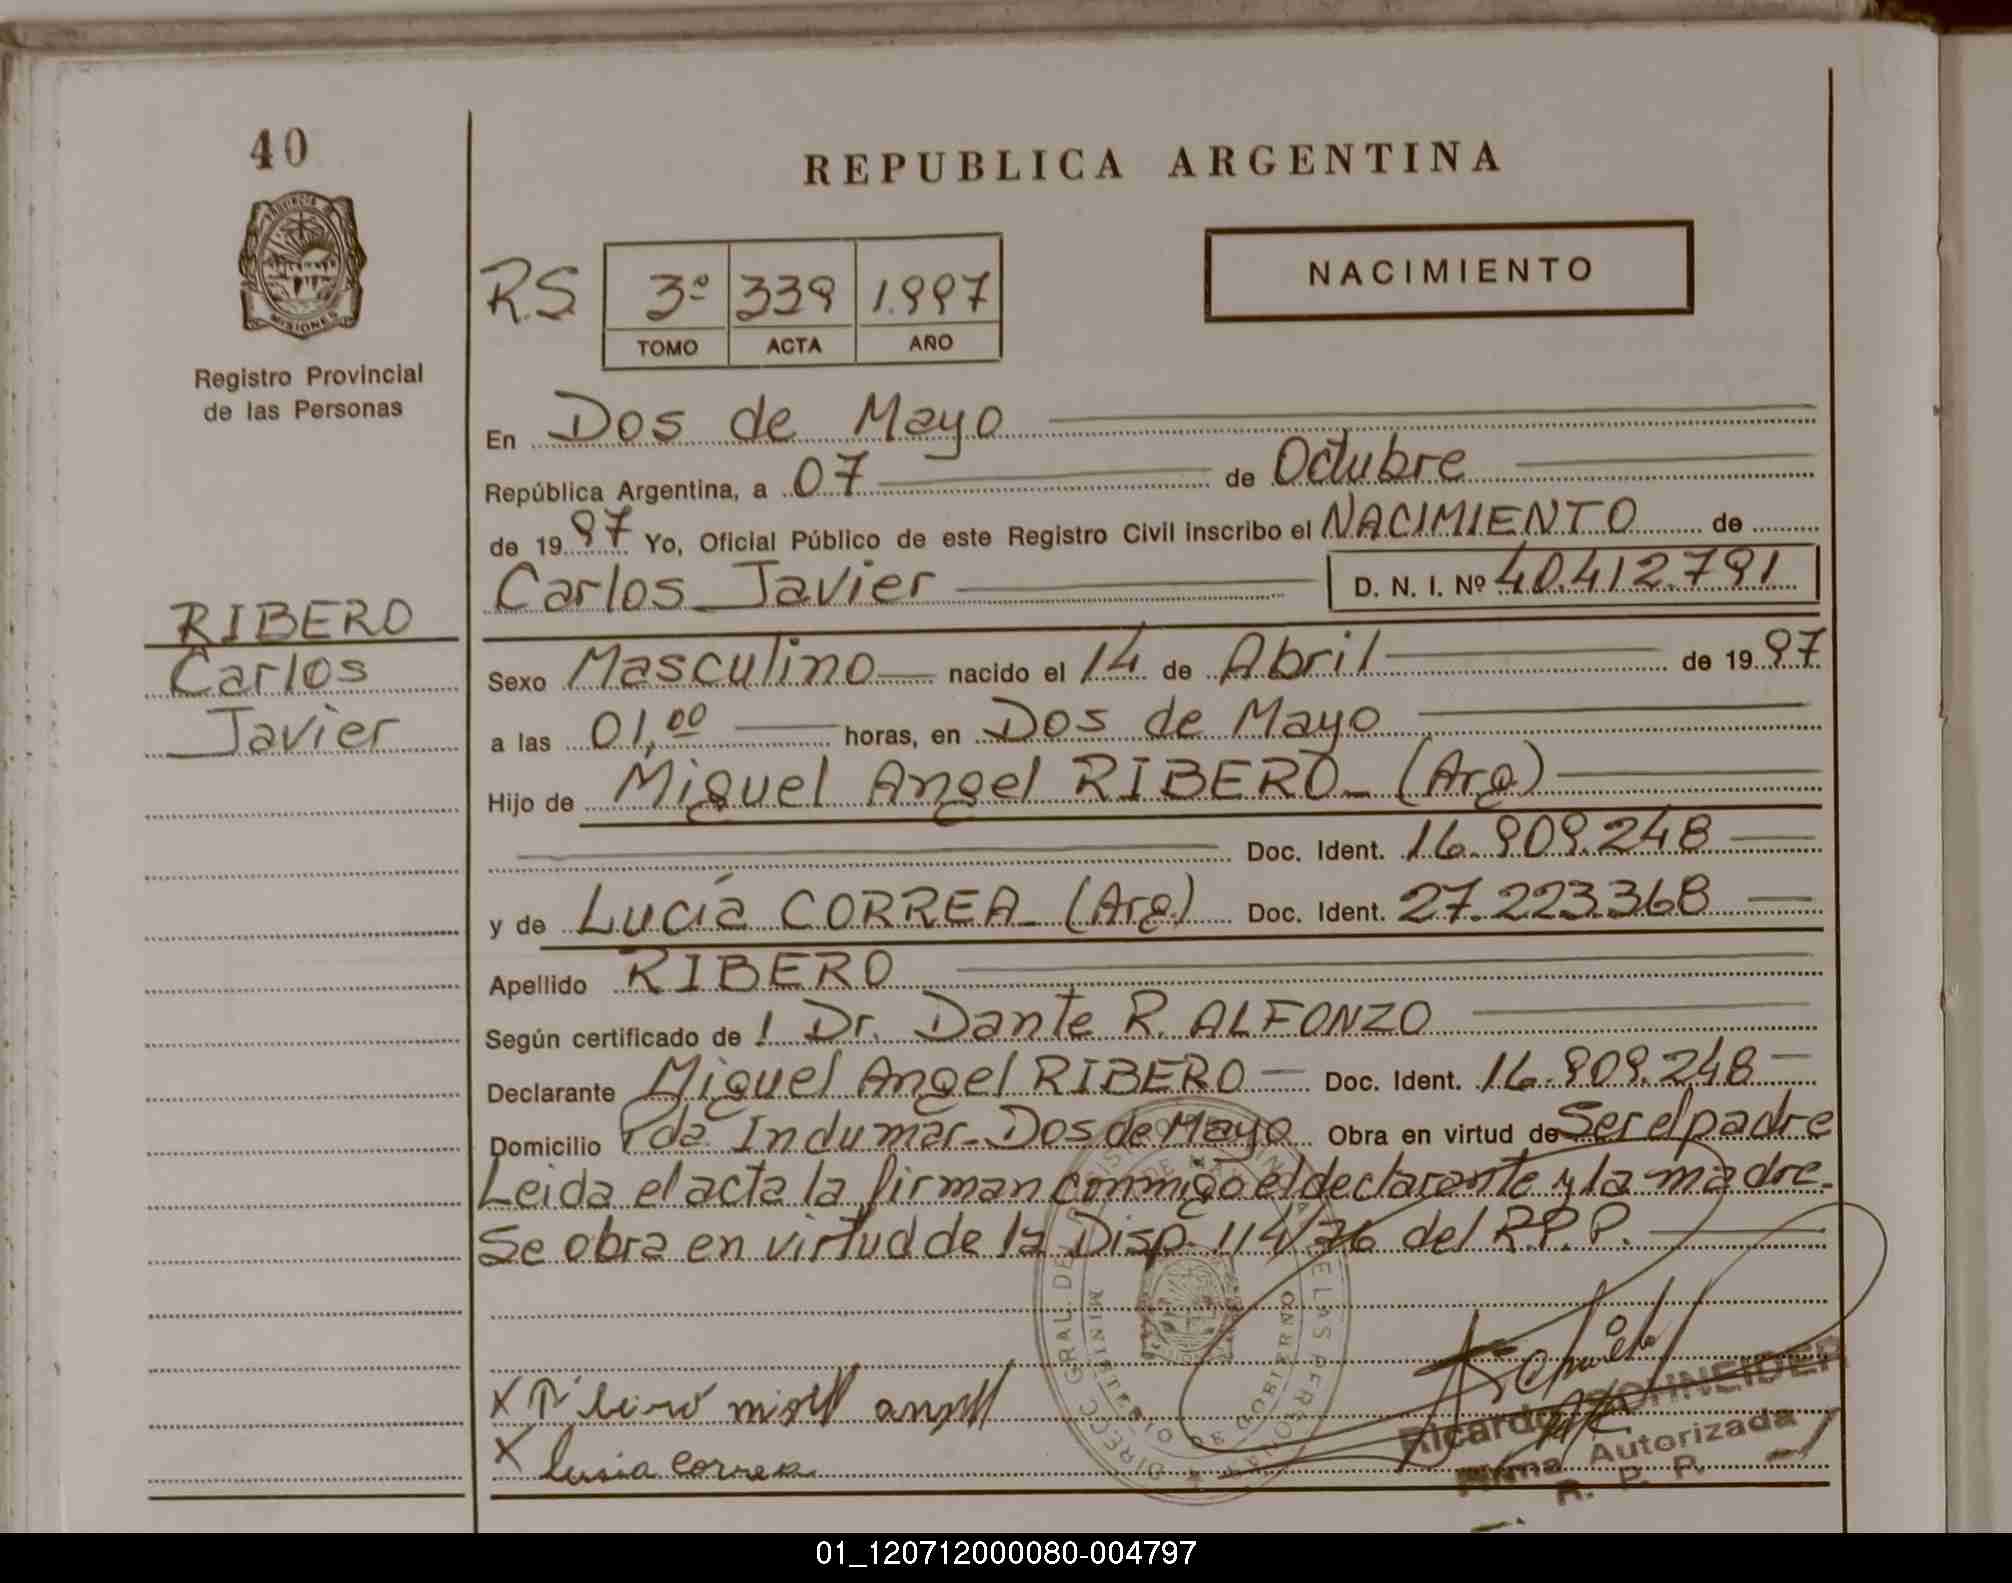 40
REPUBLICA ARGENTINA
PROVINCIA DE
MISIONES
Registro Provincial
de las Personas
RS 3º 339 1.997
TOMO ACTA AÑO
NACIMIENTO
En Dos de Mayo
República Argentina, a 07 de Octubre
de 1997 Yo, Oficial Público de este Registro Civil inscribo el NACIMIENTO de
Carlos Javier D. N. I. Nº 40.412.791
RIBERO
Carlos
Javier
Sexo Masculino nacido el 14 de Abril de 1997
a las 01,00 horas, en Dos de Mayo
Hijo de Miguel Angel RIBERO_ (Arg)
Doc. Ident. 16.909.248
y de Lucía CORREA_ (Arg.) Doc. Ident. 27.223.368
Apellido RIBERO
Según certificado de l Dr. Dante R. ALFONZO
Declarante Miguel Angel RIBERO Doc. Ident. 16.909.248
Domicilio Pda. Indumar_ Dos de Mayo Obra en virtud de Ser el padre
Leida el acta la firman conmigo el declarante y la madre.
Se obra en virtud de la Disp. 114/76 del R.P.P.
X Ribero
X lusia correa
Ricardo SCHNEIDER
Firma Autorizada
R. P. P.
01_120712000080-004797